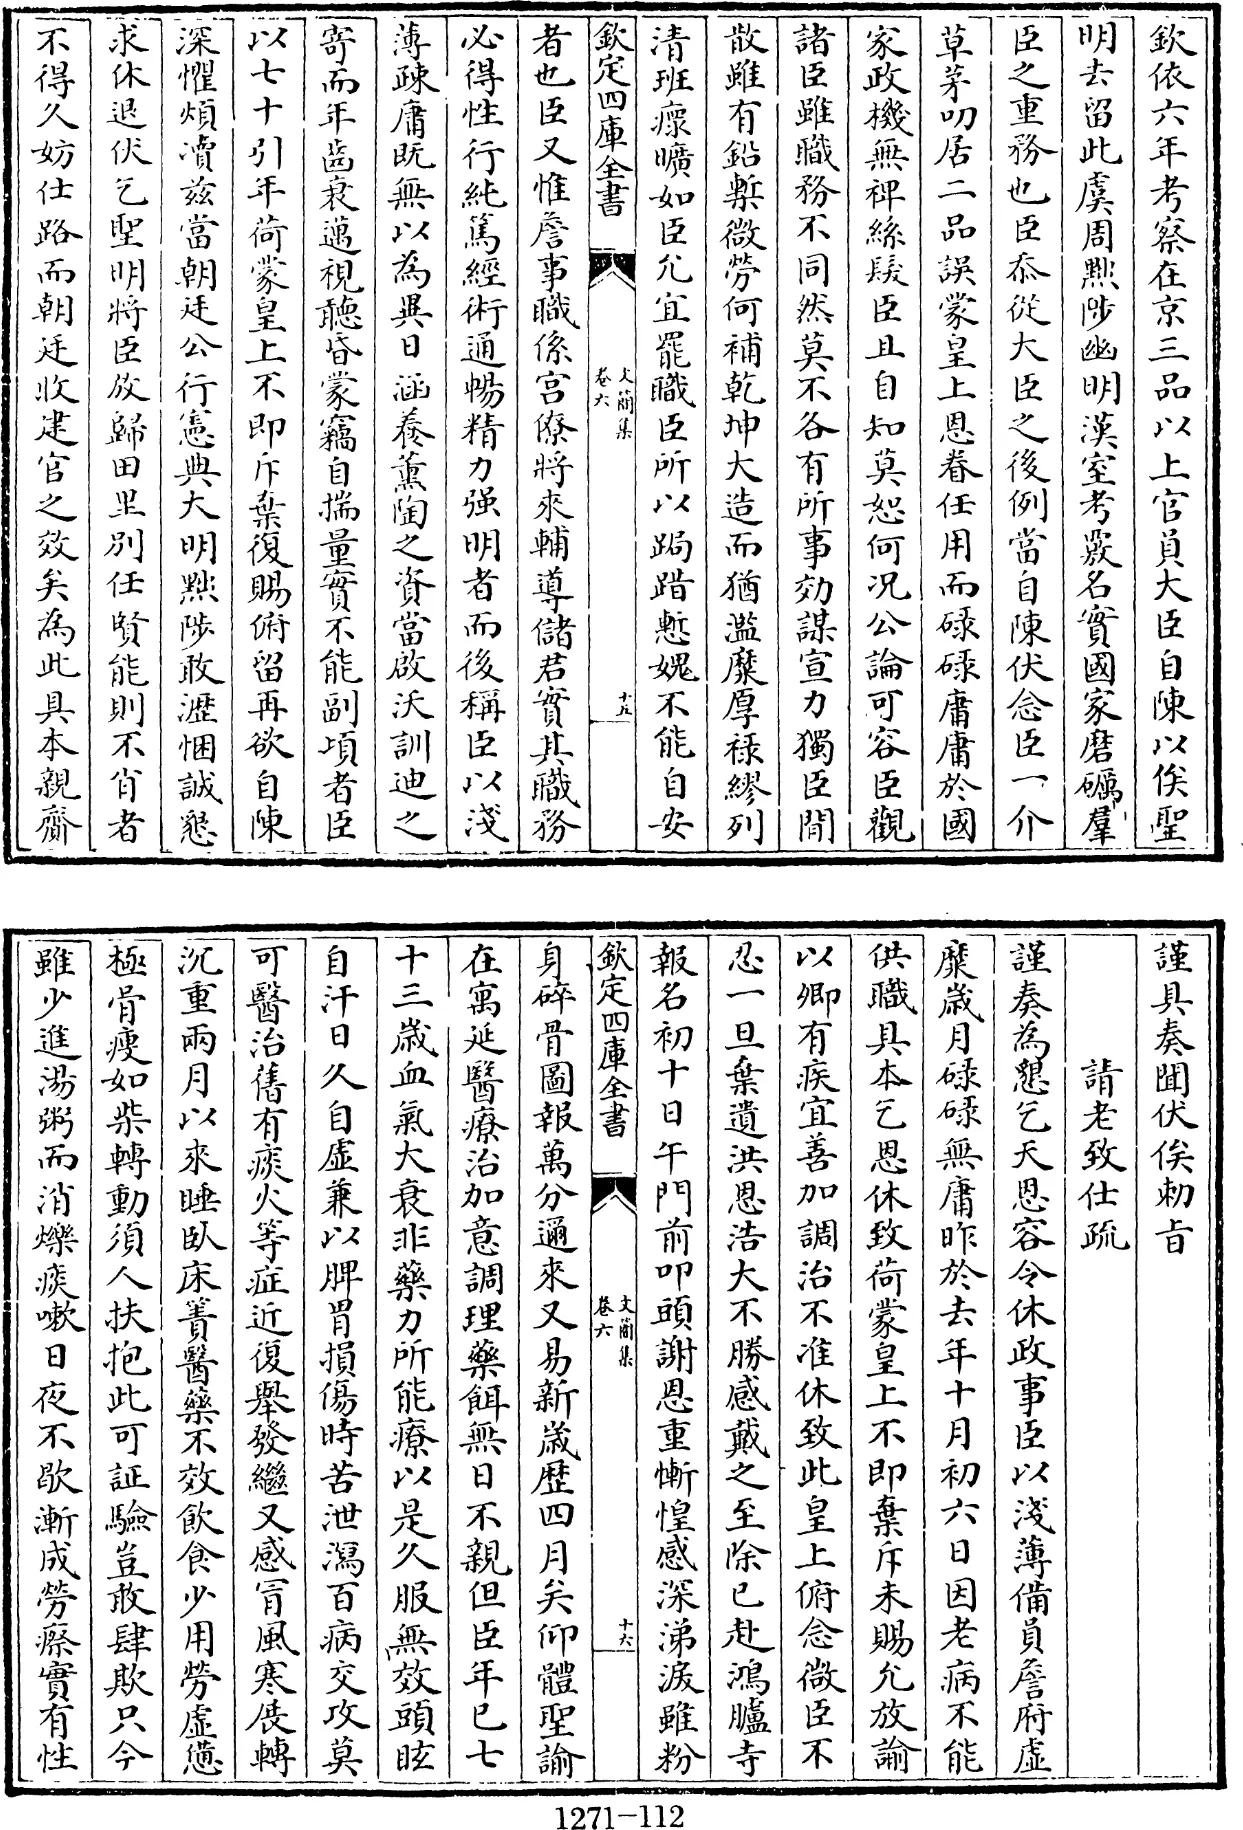 欽依六年考察在京三品以上官員大臣自陳以俟聖
明去留此虞周黜陟幽明漢室考覈名實國家磨礪羣
臣之重務也臣忝從大臣之後例當自陳伏念臣一介
草茅叨居二品誤蒙皇上恩眷任用而碌碌庸庸於國
家政機無裨絲髮臣且自知莫恕何况公論可容臣觀
諸臣雖職務不同然莫不各有所事効謀宣力獨臣閒
散雖有鉛槧微勞何補乾坤大造而猶濫糜厚祿繆列
清班瘝曠如臣允宜罷職臣所以跼蹐慙媿不能自安
欽定四庫全書
文簡集
卷六
十五
者也臣又惟詹事職係宮僚將來輔導儲君實其職務
必得性行純篤經術通暢精力强明者而後稱臣以淺
薄疎庸既無以為異日涵養薰陶之資當啟沃訓迪之
寄而年齒衰邁視聽昏蒙竊自揣量實不能副頃者臣
以七十引年荷蒙皇上不即斥棄復賜俯留再欲自陳
深懼煩凟兹當朝廷公行憲典大明黜陟敢瀝悃誠懇
求休退伏乞聖明將臣放歸田里別任賢能則不肖者
不得久妨仕路而朝廷收建官之效矣為此具本親齎
謹具奏聞伏俟勅旨
請老致仕疏
謹奏為懇乞天恩容令休政事臣以淺薄備員詹府虛
糜歲月碌碌無庸昨於去年十月初六日因老病不能
供職具本乞恩休致荷蒙皇上不即棄斥未賜允放諭
以卿有疾宜善加調治不准休致此皇上俯念微臣不
忍一旦棄遺洪恩浩大不勝感戴之至除已赴鴻臚寺
報名初十日午門前叩頭謝恩重慚惶感深涕淚雖粉
欽定四庫全書
文簡集
卷六
十六
身碎骨圖報萬分邇來又易新歲歴四月矣仰體聖諭
在寓延醫療治加意調理藥餌無日不親但臣年已七
十三歲血氣大衰非藥力所能療以是久服無效頭眩
自汗日久自虛兼以脾胃損傷時苦泄瀉百病交攻莫
可醫治舊有痰火等症近復舉發繼又感冒風寒展轉
沉重兩月以來睡臥床簀醫藥不效飲食少用勞虛憊
極骨瘦如柴轉動須人扶抱此可証驗豈敢肆欺只今
雖少進湯粥而消爍痰嗽日夜不歇漸成勞瘵實有性
1271-112